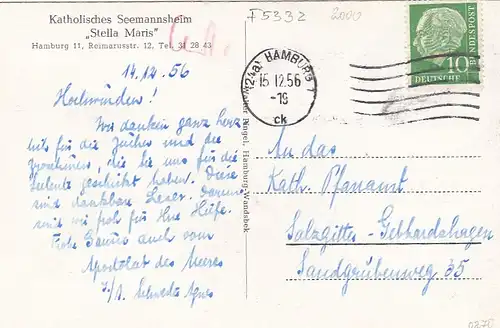 Katholisches Seemannsheim
„Stella Maris"
Hamburg 11, Reimarusstr. 12, Tel. 31 28 43
F5332
2000
14.12.56
Hochwürden!
Wir danken ganz herz-
lich für die Bücher und die
, die Sie uns für die
Seeleute geschickt haben. Diese
sind dankbare Leser. Darum
sind wir froh für Ihre Hilfe.
Frohe auch vom
Apostolat des Meeres
Schwester Agnes
(24a) HAMBURG 1
15.12.56
-18
ck
DEUTSCHE
BUNDESPOST
10
Pingel, Hamburg-Wandsbek
An das
Kath. Pfarramt
Salzgitter-Gebhardshagen
Sandgrubenweg 35